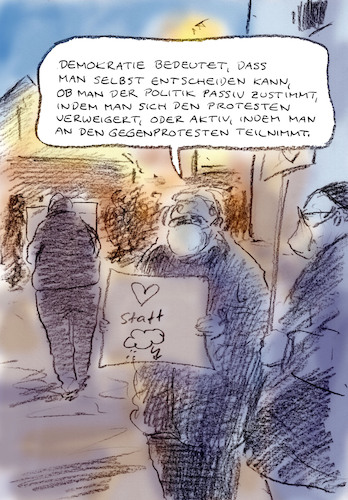 DEMOKRATIE BEDEUTET, DASS
MAN SELBST ENTSCHEIDEN KANN,
OB MAN DER POLITIK PASSIV ZUSTIMMT,
INDEM MAN SICH DEN PROTESTEN
VERWEIGERT, ODER AKTIV, INDEM MAN
AN DEN GEGENPROTESTEN TEILNIMMT.
statt